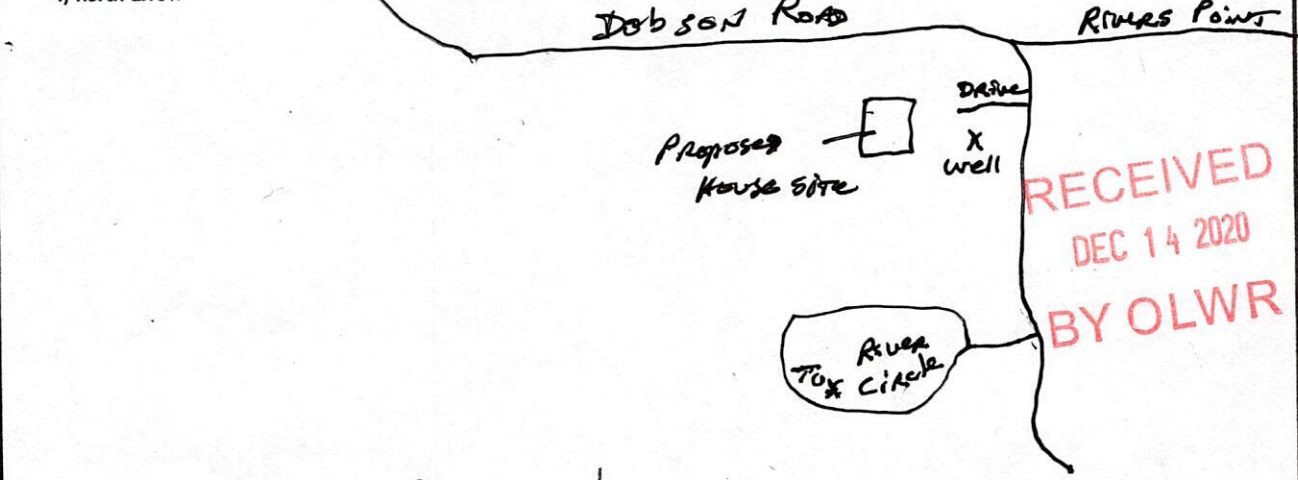 DobsoN ROAD
RIVERS POINT
DRive
PRoposed
House SiTe
X
well
RECEIVED
DEC 14 2020
BY OLWR
RiveR
CiRcle